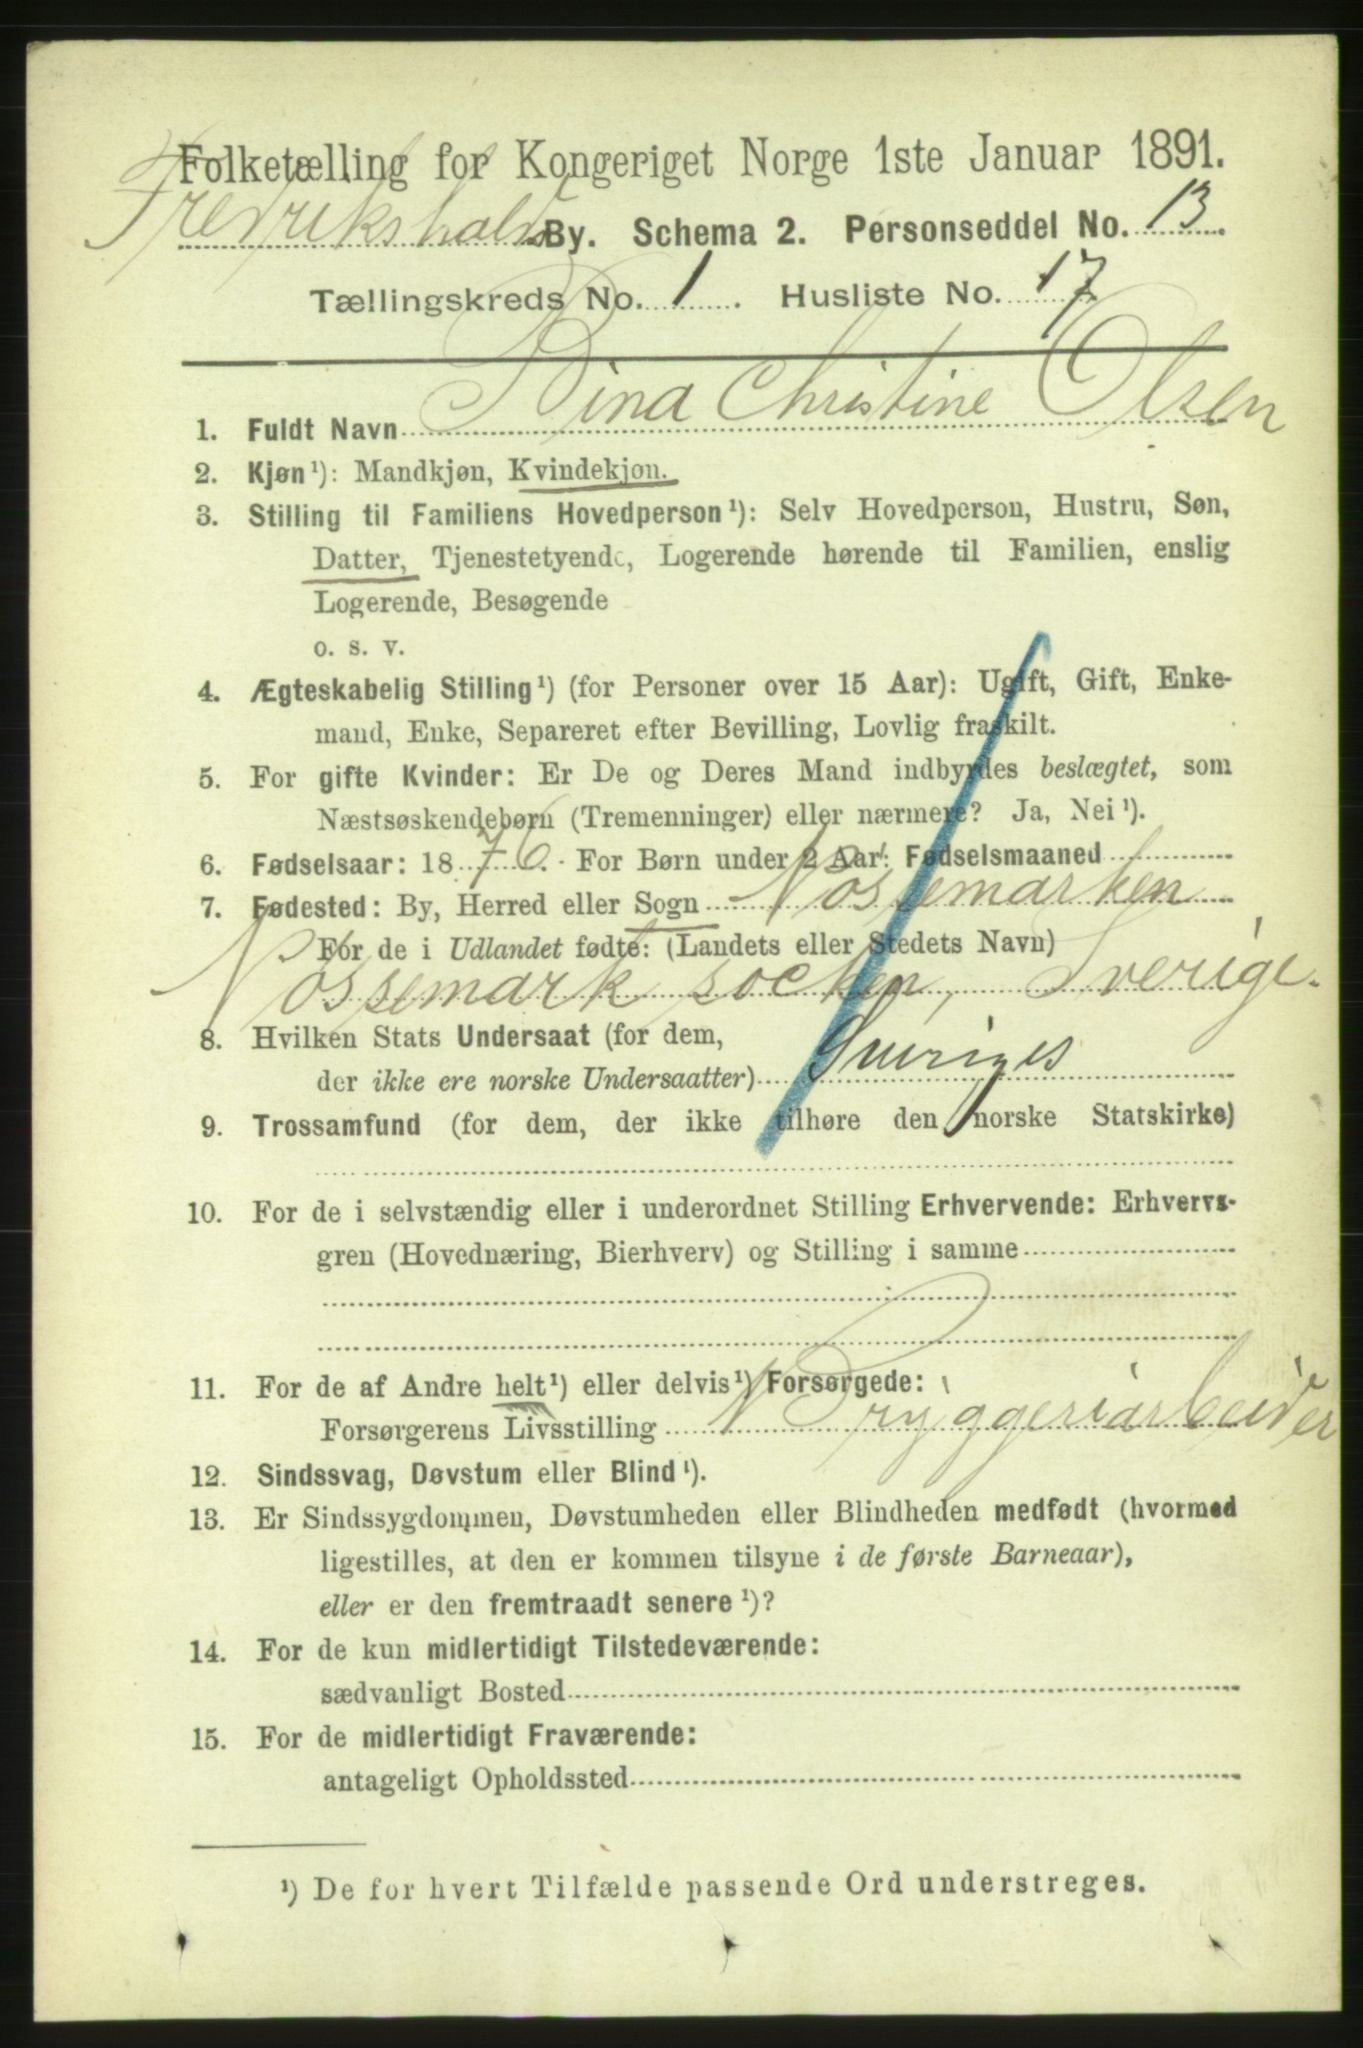 Folketælling for Kongeriget Norge 1ste Januar 1891.
Fredrikshald By. Schema 2. Personseddel No. 13.
Tællingskreds No. 1. Husliste No. 17
1. Fuldt Navn Bina Christine Olsen
2. Kjøn¹): Mandkjøn, Kvindekjøn.
3. Stilling til Familiens Hovedperson¹): Selv Hovedperson, Hustru, Søn,
Datter, Tjenestetyende, Logerende hørende til Familien, enslig
Logerende, Besøgende
o. s. v.
4. Ægteskabelig Stilling¹) (for Personer over 15 Aar): Ugift, Gift, Enke-
mand, Enke, Separeret efter Bevilling, Lovlig fraskilt.
5. For gifte Kvinder: Er De og Deres Mand indbyrdes beslægtet, som
Næstsøskendebørn (Tremenninger) eller nærmere? Ja, Nei¹).
6. Fødselsaar: 1876. For Børn under 2 Aar: Fødselsmaaned
7. Fødested: By, Herred eller Sogn Nössemarken
For de i Udlandet fødte: (Landets eller Stedets Navn)
Nössemark socken, Sverige.
8. Hvilken Stats Undersaat (for dem,
der ikke ere norske Undersaatter) Sveriges
9. Trossamfund (for dem, der ikke tilhøre den norske Statskirke)
10. For de i selvstændig eller i underordnet Stilling Erhvervende: Erhvervs-
gren (Hovednæring, Bierhverv) og Stilling i samme
11. For de af Andre helt¹) eller delvis¹) Forsørgede:
Forsørgerens Livsstilling Bryggeriarbeider
12. Sindssvag, Døvstum eller Blind¹).
13. Er Sindssygdommen, Døvstumheden eller Blindheden medfødt (hvormed
ligestilles, at den er kommen tilsyne i de første Barneaar),
eller er den fremtraadt senere¹)?
14. For de kun midlertidigt Tilstedeværende:
sædvanligt Bosted
15. For de midlertidigt Fraværende:
antageligt Opholdssted
¹) De for hvert Tilfælde passende Ord understreges.